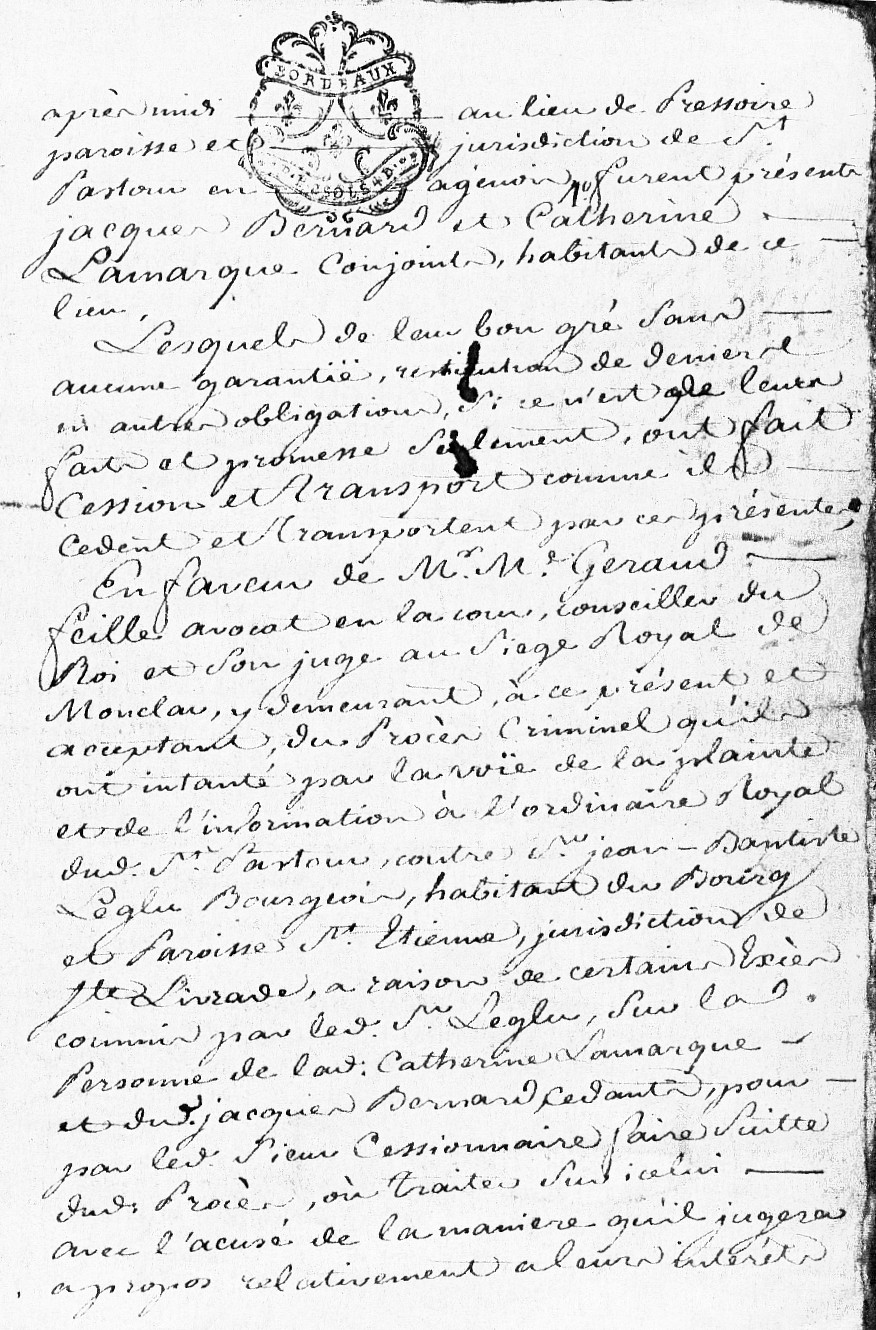 BORDEAUX
après midi au lieu de Pressoire
paroisse et jurisdiction de St
Pastour en agenois, furent présents
jacques Bernard et Catherine
Lamarque Conjoints, habitants de ce
lieu,
Lesquels de leur bon gré sans
aucune garantië, restitution de deniers
ni autres obligations, si ce n'est de leurs
faits et promesse seulement, ont fait
Cession et transport comme ils
cedent et transportent par ces présentes,
En faveur de Mr. Me. Geraud
feille avocat en la cour, conseiller du
Roi et son juge au siege Royal de
Monclar, y demeurant, à ce présent et
acceptant, du Procès Criminel qu'ils
ont intanté par la voïe de la plainte
et de l'information à l'ordinaire Royal
dud. St. Pastour, contre Sr. jean-Baptiste
Leglu Bourgeois, habitant du Bourg
et Paroisse St. Etienne, jurisdiction de
Ste Livrade, a raison de certains Excès
commis par led. Sr. Leglu, sur la
Personne de lad: Catherine Lamarque
et dud. jacques Bernard, cedants, pour
par led. Sieur Cessionnaire faire suitte
dud: Procès, où traiter sur icelui
avec l'acusé de la maniere qu'il jugera
a propos relativement a leurs intérêts